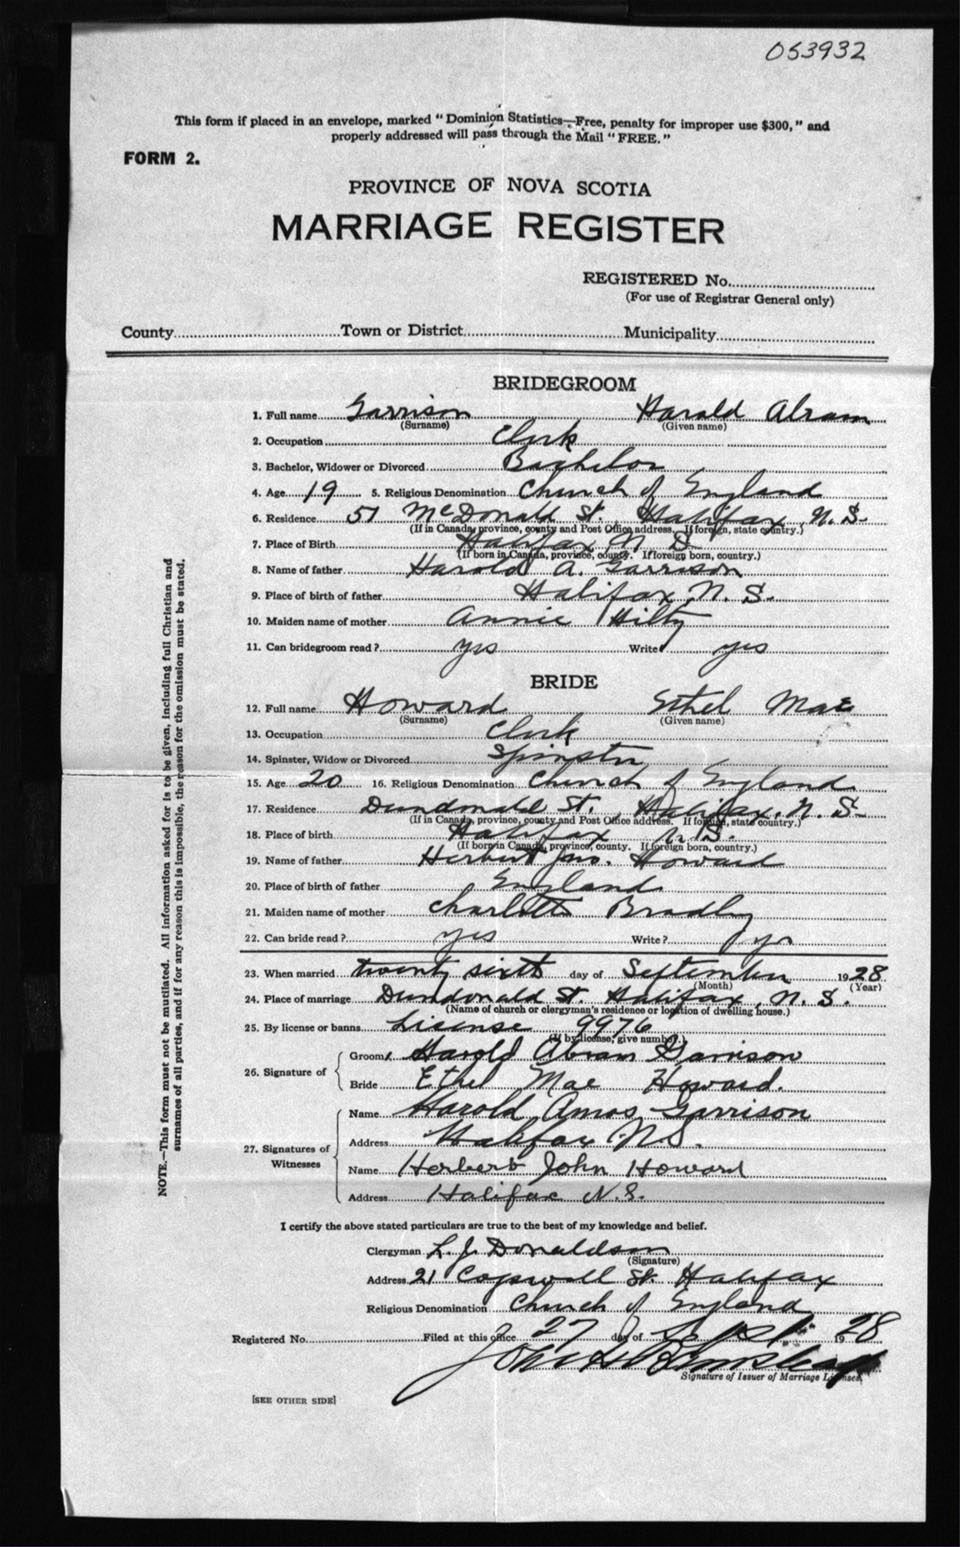 053932
This form if placed in an envelope, marked "Dominion Statistics—Free, penalty for improper use $300," and
properly addressed will pass through the Mail "FREE."
FORM 2.
PROVINCE OF NOVA SCOTIA
MARRIAGE REGISTER
REGISTERED No.
(For use of Registrar General only)
County Town or District Municipality
BRIDEGROOM
1. Full name Garrison Harald Abram
(Surname) (Given name)
2. Occupation Clerk
3. Bachelor, Widower or Divorced Bachelor
4. Age 19 5. Religious Denomination Church of England
6. Residence 51 McDonald St., Halifax, N.S.
(If in Canada, province, county and Post Office address. If foreign, state country.)
7. Place of Birth Halifax N S
(If born in Canada, province, county. If foreign born, country.)
8. Name of father Harold A. Garrison
9. Place of birth of father Halifax, N. S.
10. Maiden name of mother Annie Hilty
11. Can bridegroom read? yes Write yes
BRIDE
12. Full name Howard Ethel Mae
(Surname) (Given name)
13. Occupation Clerk
14. Spinster, Widow or Divorced Spinster
15. Age 20 16. Religious Denomination Church of England
17. Residence Dundonald St., Halifax, N. S.
(If in Canada, province, county and Post Office address. If foreign, state country.)
18. Place of birth Halifax N. S.
(If born in Canada, province, county. If foreign born, country.)
19. Name of father Herbert Jno. Howard
20. Place of birth of father England
21. Maiden name of mother Charlotte Bradley
22. Can bride read? yes Write? yes
23. When married twenty sixth day of September 1928
(Month) (Year)
24. Place of marriage Dundonald St. Halifax, N. S.
(Name of church or clergyman's residence or location of dwelling house.)
25. By license or banns License 9976
(If by license, give number.)
26. Signature of
Groom Harold Abram Garrison
Bride Ethel Mae Howard.
27. Signatures of Witnesses
Name Harold Amos Garrison
Address Halifax N.S.
Name Herbert John Howard
Address Halifax N.S.
I certify the above stated particulars are true to the best of my knowledge and belief.
Clergyman L. J. Donaldson
(Signature)
Address 21 Cogswell St. Halifax
Religious Denomination Church of England
Registered No. Filed at this office 27 day of Sept. 1928
Signature of Issuer of Marriage Licenses.
[SEE OTHER SIDE]
NOTE.—This form must not be mutilated. All information asked for is to be given, including full Christian and
surnames of all parties, and if for any reason this is impossible, the reason for the omission must be stated.